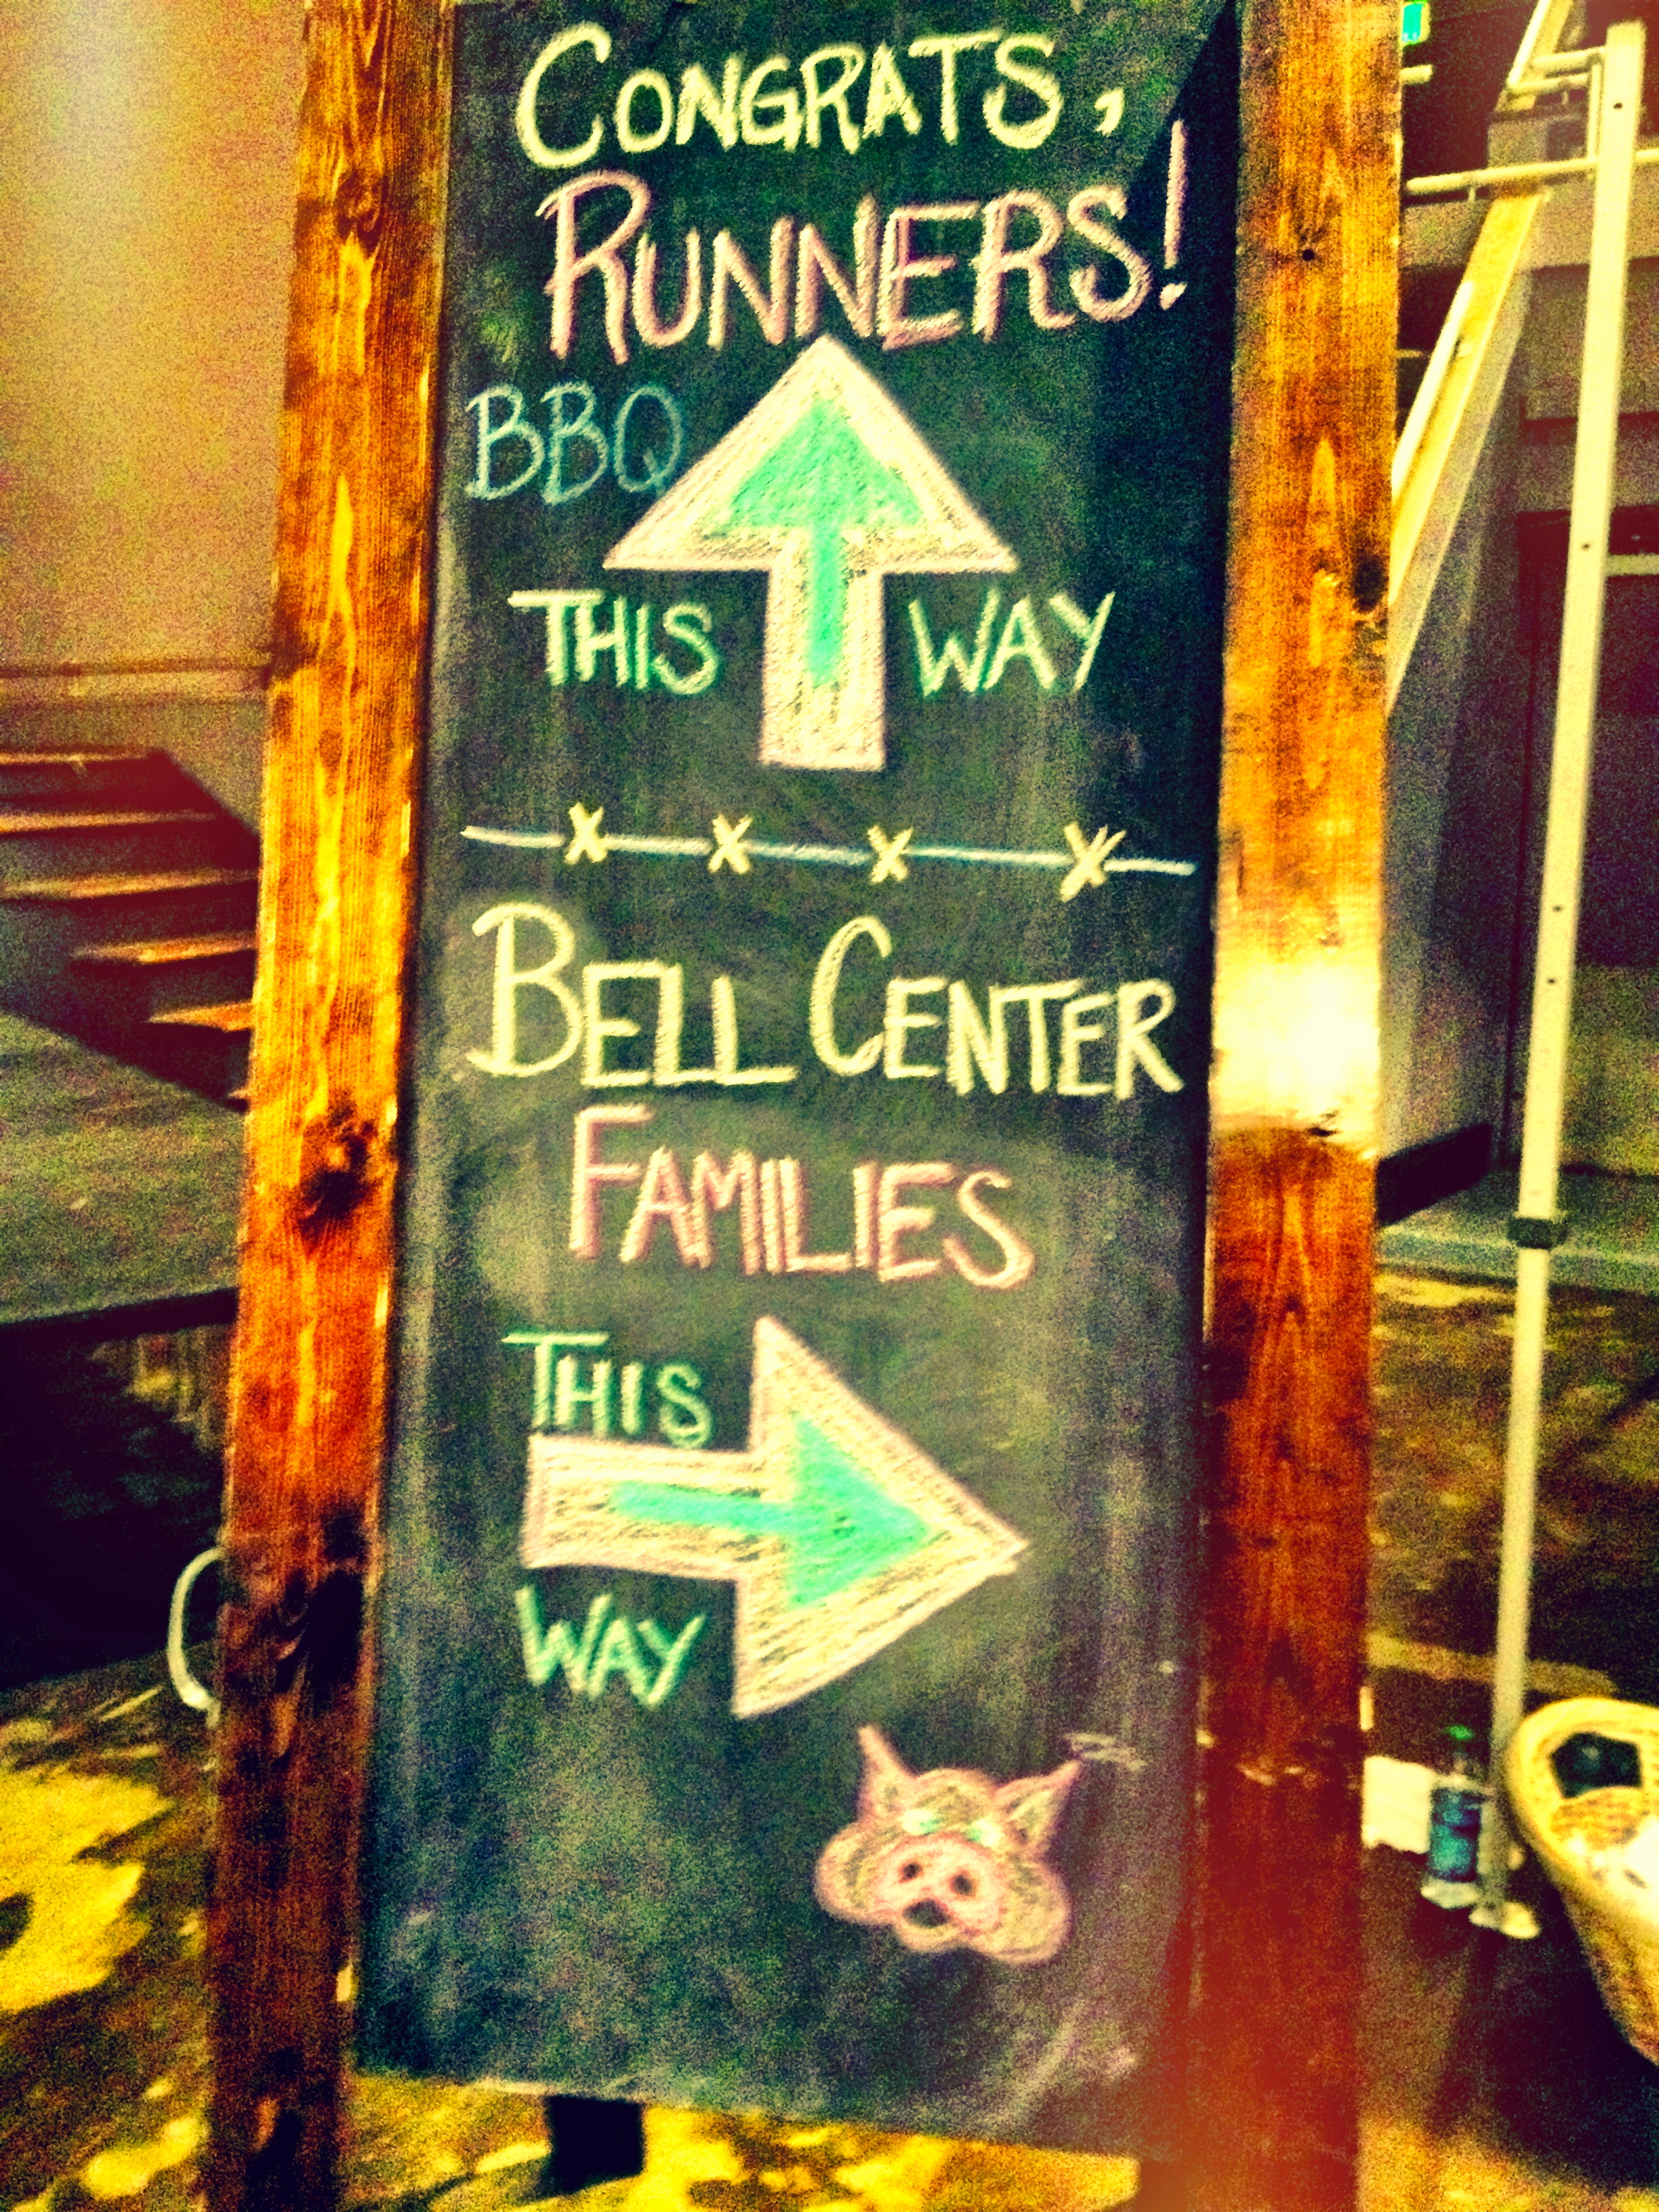 CONGRATS,
RUNNERS!
BBQ
THIS WAY
BELL CENTER
FAMILIES
THIS
WAY